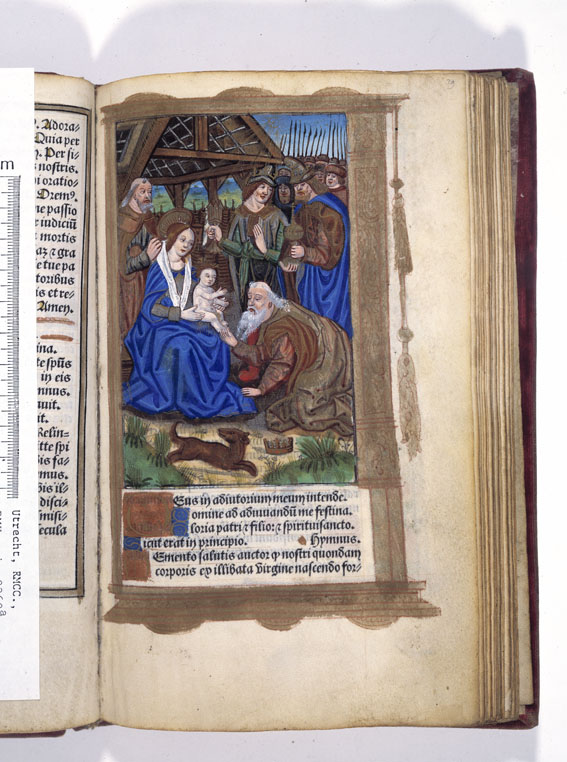 . Adora-
Quia per
. Per si-
nostris.
i oratio-
Orem9.
ne passio
e iudiciū
mortis
az ⁊ gra
e tue pa
toribus
is et re-
Amen.
ina.
tte spūs
in eis
mnus.
uuit.
it.
Relin-
tte spi
is fa-
mus.
bis il-
disci-
misi-
ecula
m
Utrecht, RMCC.,
Eus in adiutorium meum intende.
omine ad adiuuandū me festina.
loria patri ⁊ filio: ⁊ spiritui sancto.
icut erat in principio. Hymnus.
Emento salutis auctor q nostri quondam
corporis ex illibata virgine nascendo for-